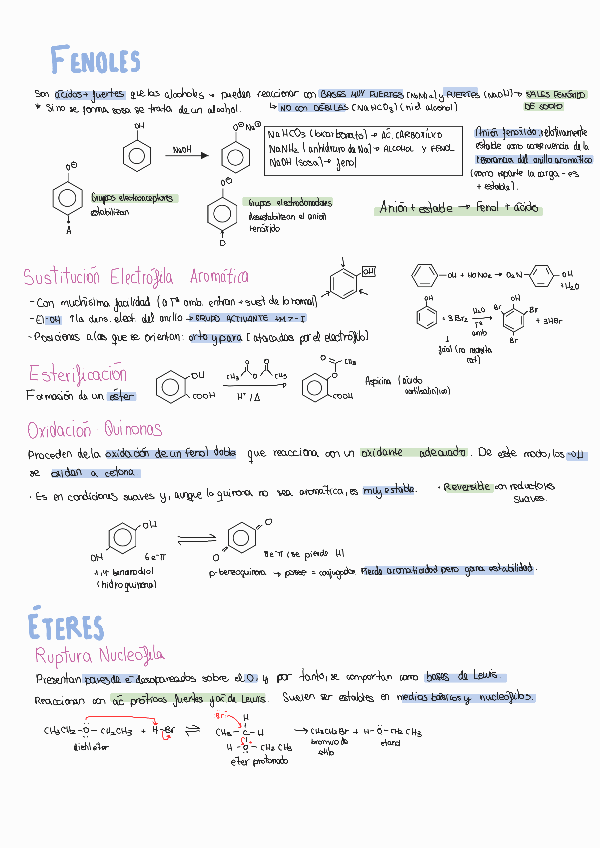 FENOLES
Son ácidos + fuertes que los alcoholes → pueden reaccionar con BASES MUY FUERTES (NaNH2) y FUERTES (NaOH) → SALES FENÓXIDO DE SODIO
* Si no se forma sosa se trata de un alcohol. ↳ NO CON DÉBILES (NaHCO3) (ni el alcohol)
OH
NaOH
O⊖ Na⊕
NaHCO3 (bicarbonato) → ÁC. CARBOXÍLICO
NaNH2 (anhidruro de Na) → ALCOHOL Y FENOL
NaOH (sosa) → fenol
Anión fenóxido, relativamente
estable como consecuencia de la
resonancia del anillo aromático
(como reparte la carga - es
+ estable).
O⊖
A
Grupos electroaceptores
estabilizan
O⊖
D
Grupos electrodonadores
desestabilizan el anión
fenóxido
Anión + estable → Fenol + ácido
Sustitución Electrófila Aromática
- Con muchísima facilidad (a Tª amb. entran + sust de lo normal)
- El -OH ↑ la dens. elect. del anillo → GRUPO ACTIVANTE +M > -I
- Posiciones a las que se orientan: orto y para (atacadas por el electrófilo)
OH
OH + HONO2 → O2N OH
+ H2O
OH
+ 3Br2
H2O
Tª
amb
OH
Br Br
Br
+ 3HBr
fácil (no necesita
cat)
Esterificación
Formación de un éster
OH
COOH
CH3 O O O CH3
H+ / Δ
O CH3
O
COOH
Aspirina (ácido
acetilsalicílico)
Oxidación Quinonas
Proceden de la oxidación de un fenol doble que reacciona con un oxidante adecuado. De este modo, los -OH
se oxidan a cetona
· Es en condiciones suaves y, aunque la quinona no sea aromática, es muy estable. · Reversible con reductores
suaves.
OH
OH 6e-π
1,4 benanodiol
(hidroquinona)
O
O
8e-π (se pierde H)
p-benzoquinona → posee = conjugados Pierde aromaticidad pero gana estabilidad.
ÉTERES
Ruptura Nucleófila
Presentan pares de e- desapareados sobre el O, y por tanto, se comportan como bases de Lewis.
Reaccionan con ác próticos fuertes y ác de Lewis. Suelen ser estables en medios básicos y nucleófilos.
CH3CH2 - O - CH2CH3 + H - Br ⇌
dietil éter
Br
H
CH3 - C - H
H - O - CH2 CH3
éter protonado
→ CH3CH2Br + H - O - CH2 CH3
bromuro de
etilo
etanol